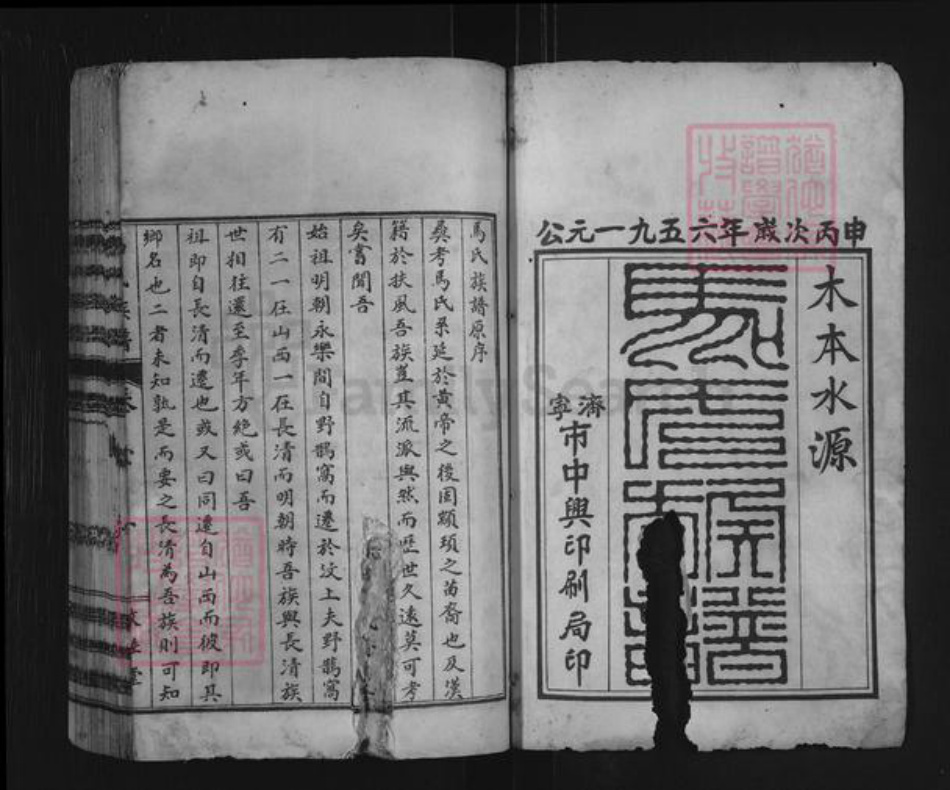 公元一九五六年歲次丙申
木本水源
馬氏族譜
濟寧市中興印刷局印
馬氏族譜原序
粵考馬氏系延於黃帝之後固顓頊之苗裔也及漢
籍於扶風吾族豈其流派與然而歷世久遠莫可考
矣嘗聞吾
始祖明朝永樂間自野鵲窩而遷於汶上夫野鵲窩
有二一在山西一在長清而明朝時吾族與長清族
世相往還至季年方絕或曰吾
祖即自長清而遷也或又曰同遷自山西而彼即其
鄉名也二者未知孰是而要之長清為吾族則可知